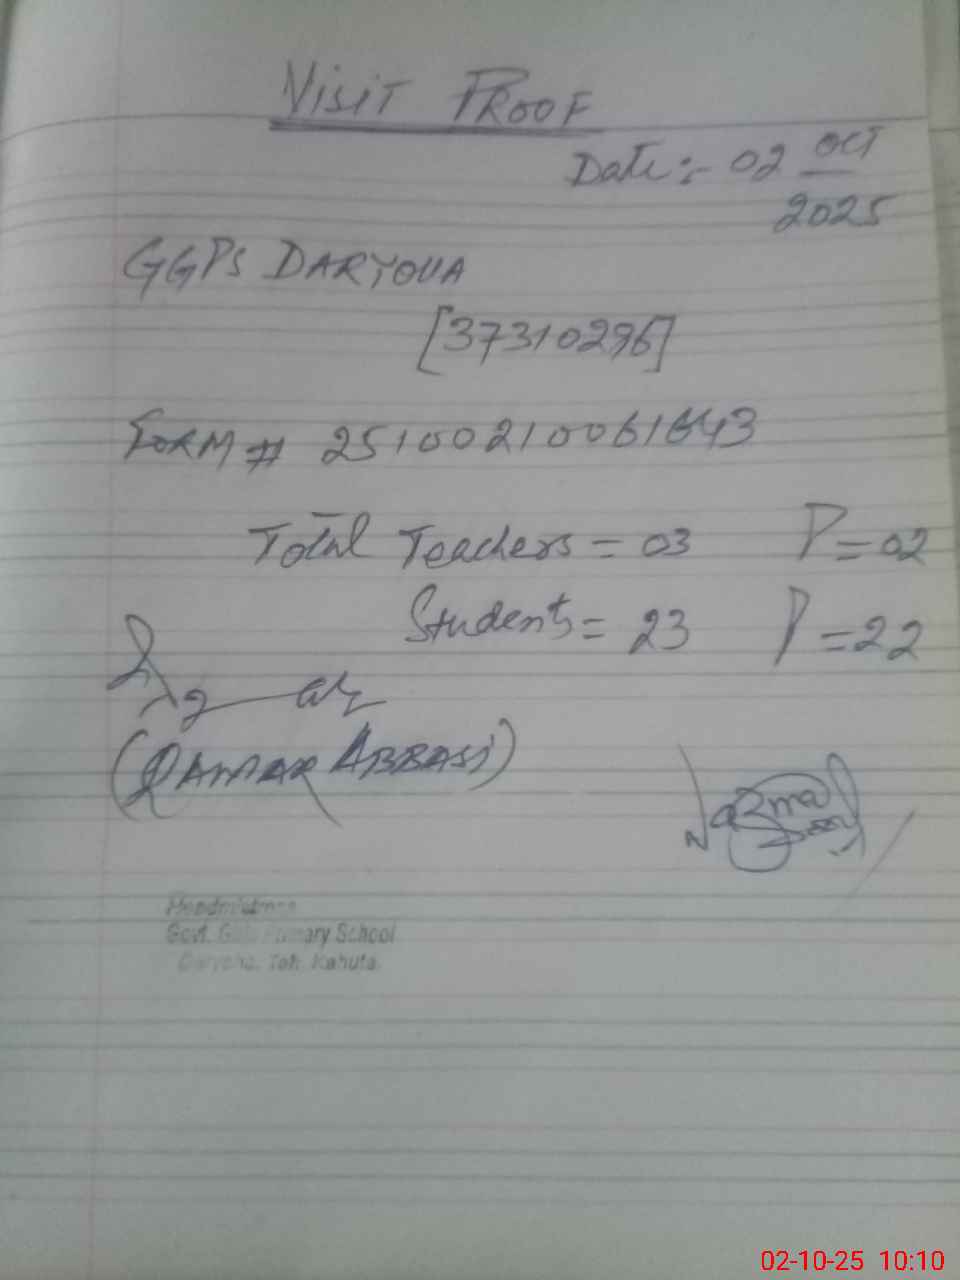 VISIT PROOF
Date:- 02 Oct
2025
GGPS DARYOUA
[37310296]
FORM # 25100210061643
Total Teachers = 03 P = 02
Students = 23 P = 22
(QAMAR ABBASI)
Nazma
Headmistress
Govt. Girls Primary School
Daryoha, Teh. Kahuta.
02-10-25 10:10